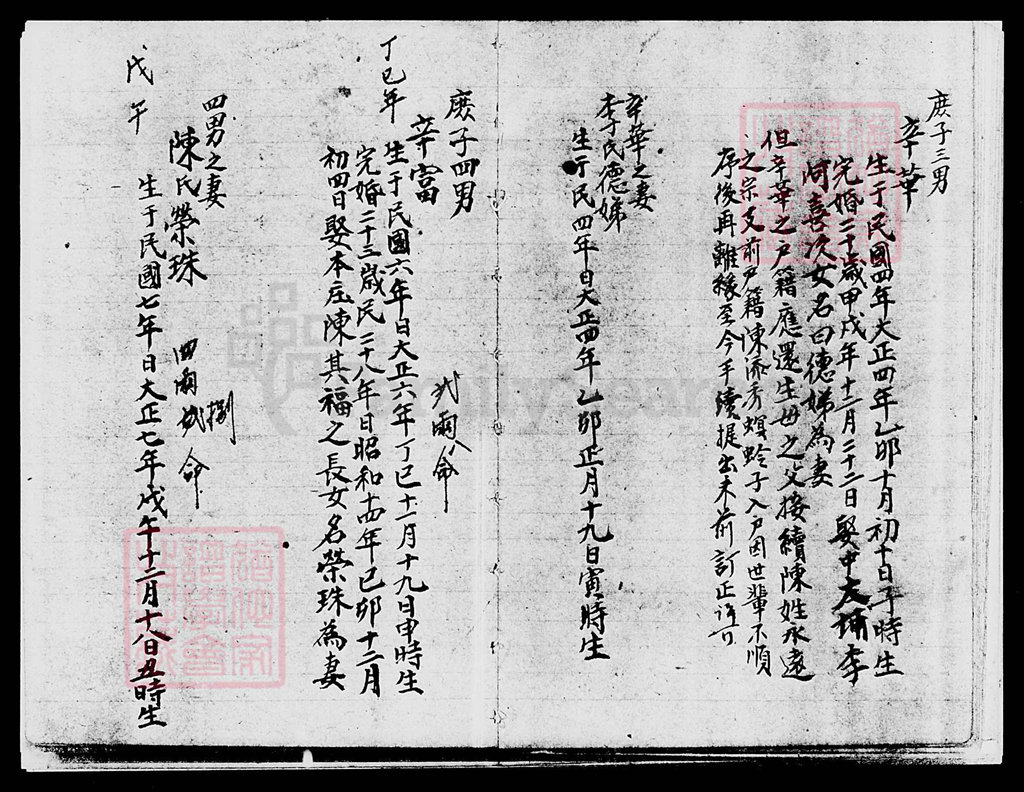 庶子三男
辛華
生于民國四年大正四年乙卯十月初十日子時生
完婚二十歲甲戌年十二月二十二日娶中大埔李
阿喜次女名曰德娣為妻
但辛華之戶籍應還生母之父接續陳姓永遠
之宗支前戶籍陳添秀螟蛉子入戶因世輩不順
序後再離緣至今手續提出未前訂正許可
辛華之妻
李氏德娣
生于民四年日大正四年乙卯正月十九日寅時生
庶子四男 弍兩八命
辛富
丁巳年
生于民國六年日大正六年丁巳十一月十九日申時生
完婚二十三歲民二十八年日昭和十四年己卯十二月
初四日娶本庄陳其福之長女名榮珠為妻
四男之妻 捌
陳氏榮珠 四兩 命
戊午
生于民國七年日大正七年戊午十二月十八日丑時生